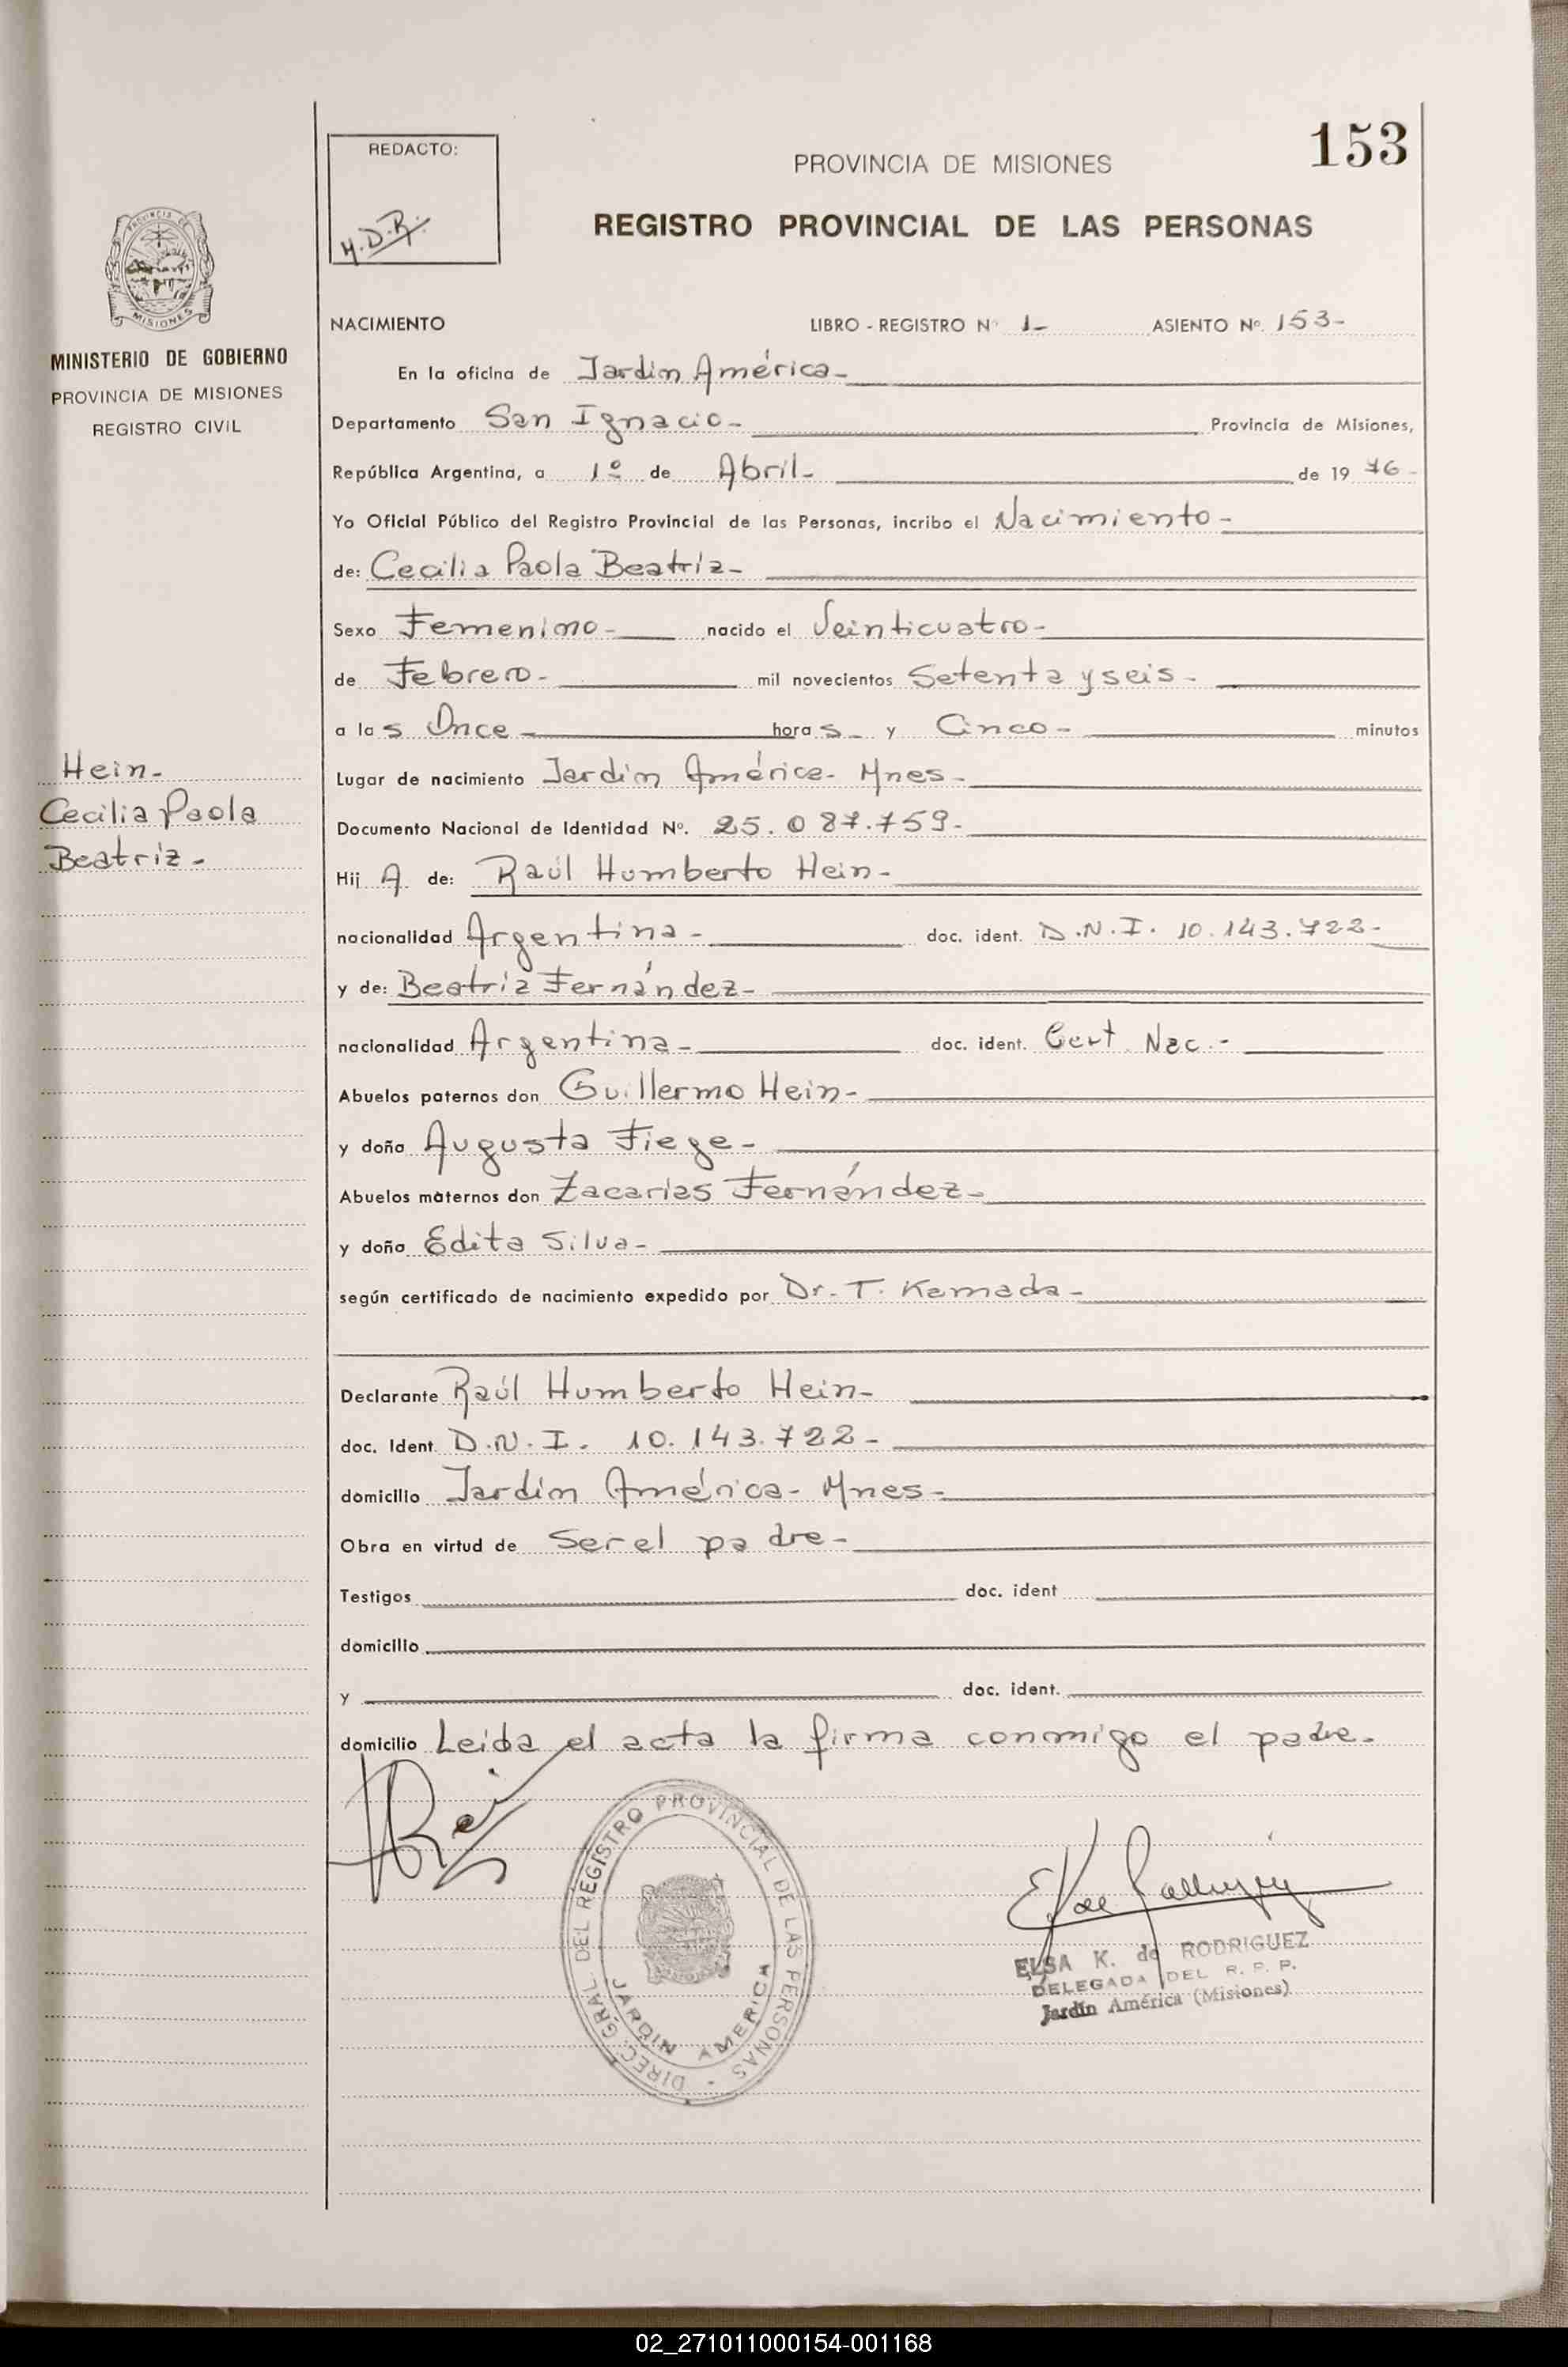 153
REDACTO:
H.D.R.
PROVINCIA DE MISIONES
REGISTRO PROVINCIAL DE LAS PERSONAS
PROVINCIA DE
MISIONES
MINISTERIO DE GOBIERNO
PROVINCIA DE MISIONES
REGISTRO CIVIL
Hein-
Cecilia Paola
Beatriz-
NACIMIENTO LIBRO - REGISTRO Nº 1- ASIENTO Nº. 153-
En la oficina de Jardín América-
Departamento San Ignacio- Provincia de Misiones,
República Argentina, a 1º de Abril- de 19 76-
Yo Oficial Público del Registro Provincial de las Personas, incribo el Nacimiento-
de: Cecilia Paola Beatriz-
Sexo Femenino- nacido el Veinticuatro-
de Febrero- mil novecientos Setenta y seis-
a las Once- horas- y Cinco- minutos
Lugar de nacimiento Jardín América- Mnes-
Documento Nacional de Identidad Nº. 25.087.759-
Hij A de: Raúl Humberto Hein-
nacionalidad Argentina- doc. ident. D.N.I. 10.143.722-
y de: Beatriz Fernández-
nacionalidad Argentina- doc. ident. Cert. Nac.-
Abuelos paternos don Guillermo Hein-
y doña Augusta Fiege-
Abuelos maternos don Zacarías Fernández-
y doña Edita Silva-
según certificado de nacimiento expedido por Dr. T. Kamada-
Declarante Raúl Humberto Hein-
doc. Ident. D.N.I. 10.143.722-
domicilio Jardín América- Mnes-
Obra en virtud de Ser el padre-
Testigos doc. ident
domicilio
y doc. ident.
domicilio Leida el acta la firma conmigo el padre.
DIREC. GRAL. DEL REGISTRO PROVINCIAL DE LAS PERSONAS -
JARDIN AMERICA
ELSA K. de RODRIGUEZ
DELEGADA DEL R. P. P.
Jardín América (Misiones)
02_271011000154-001168